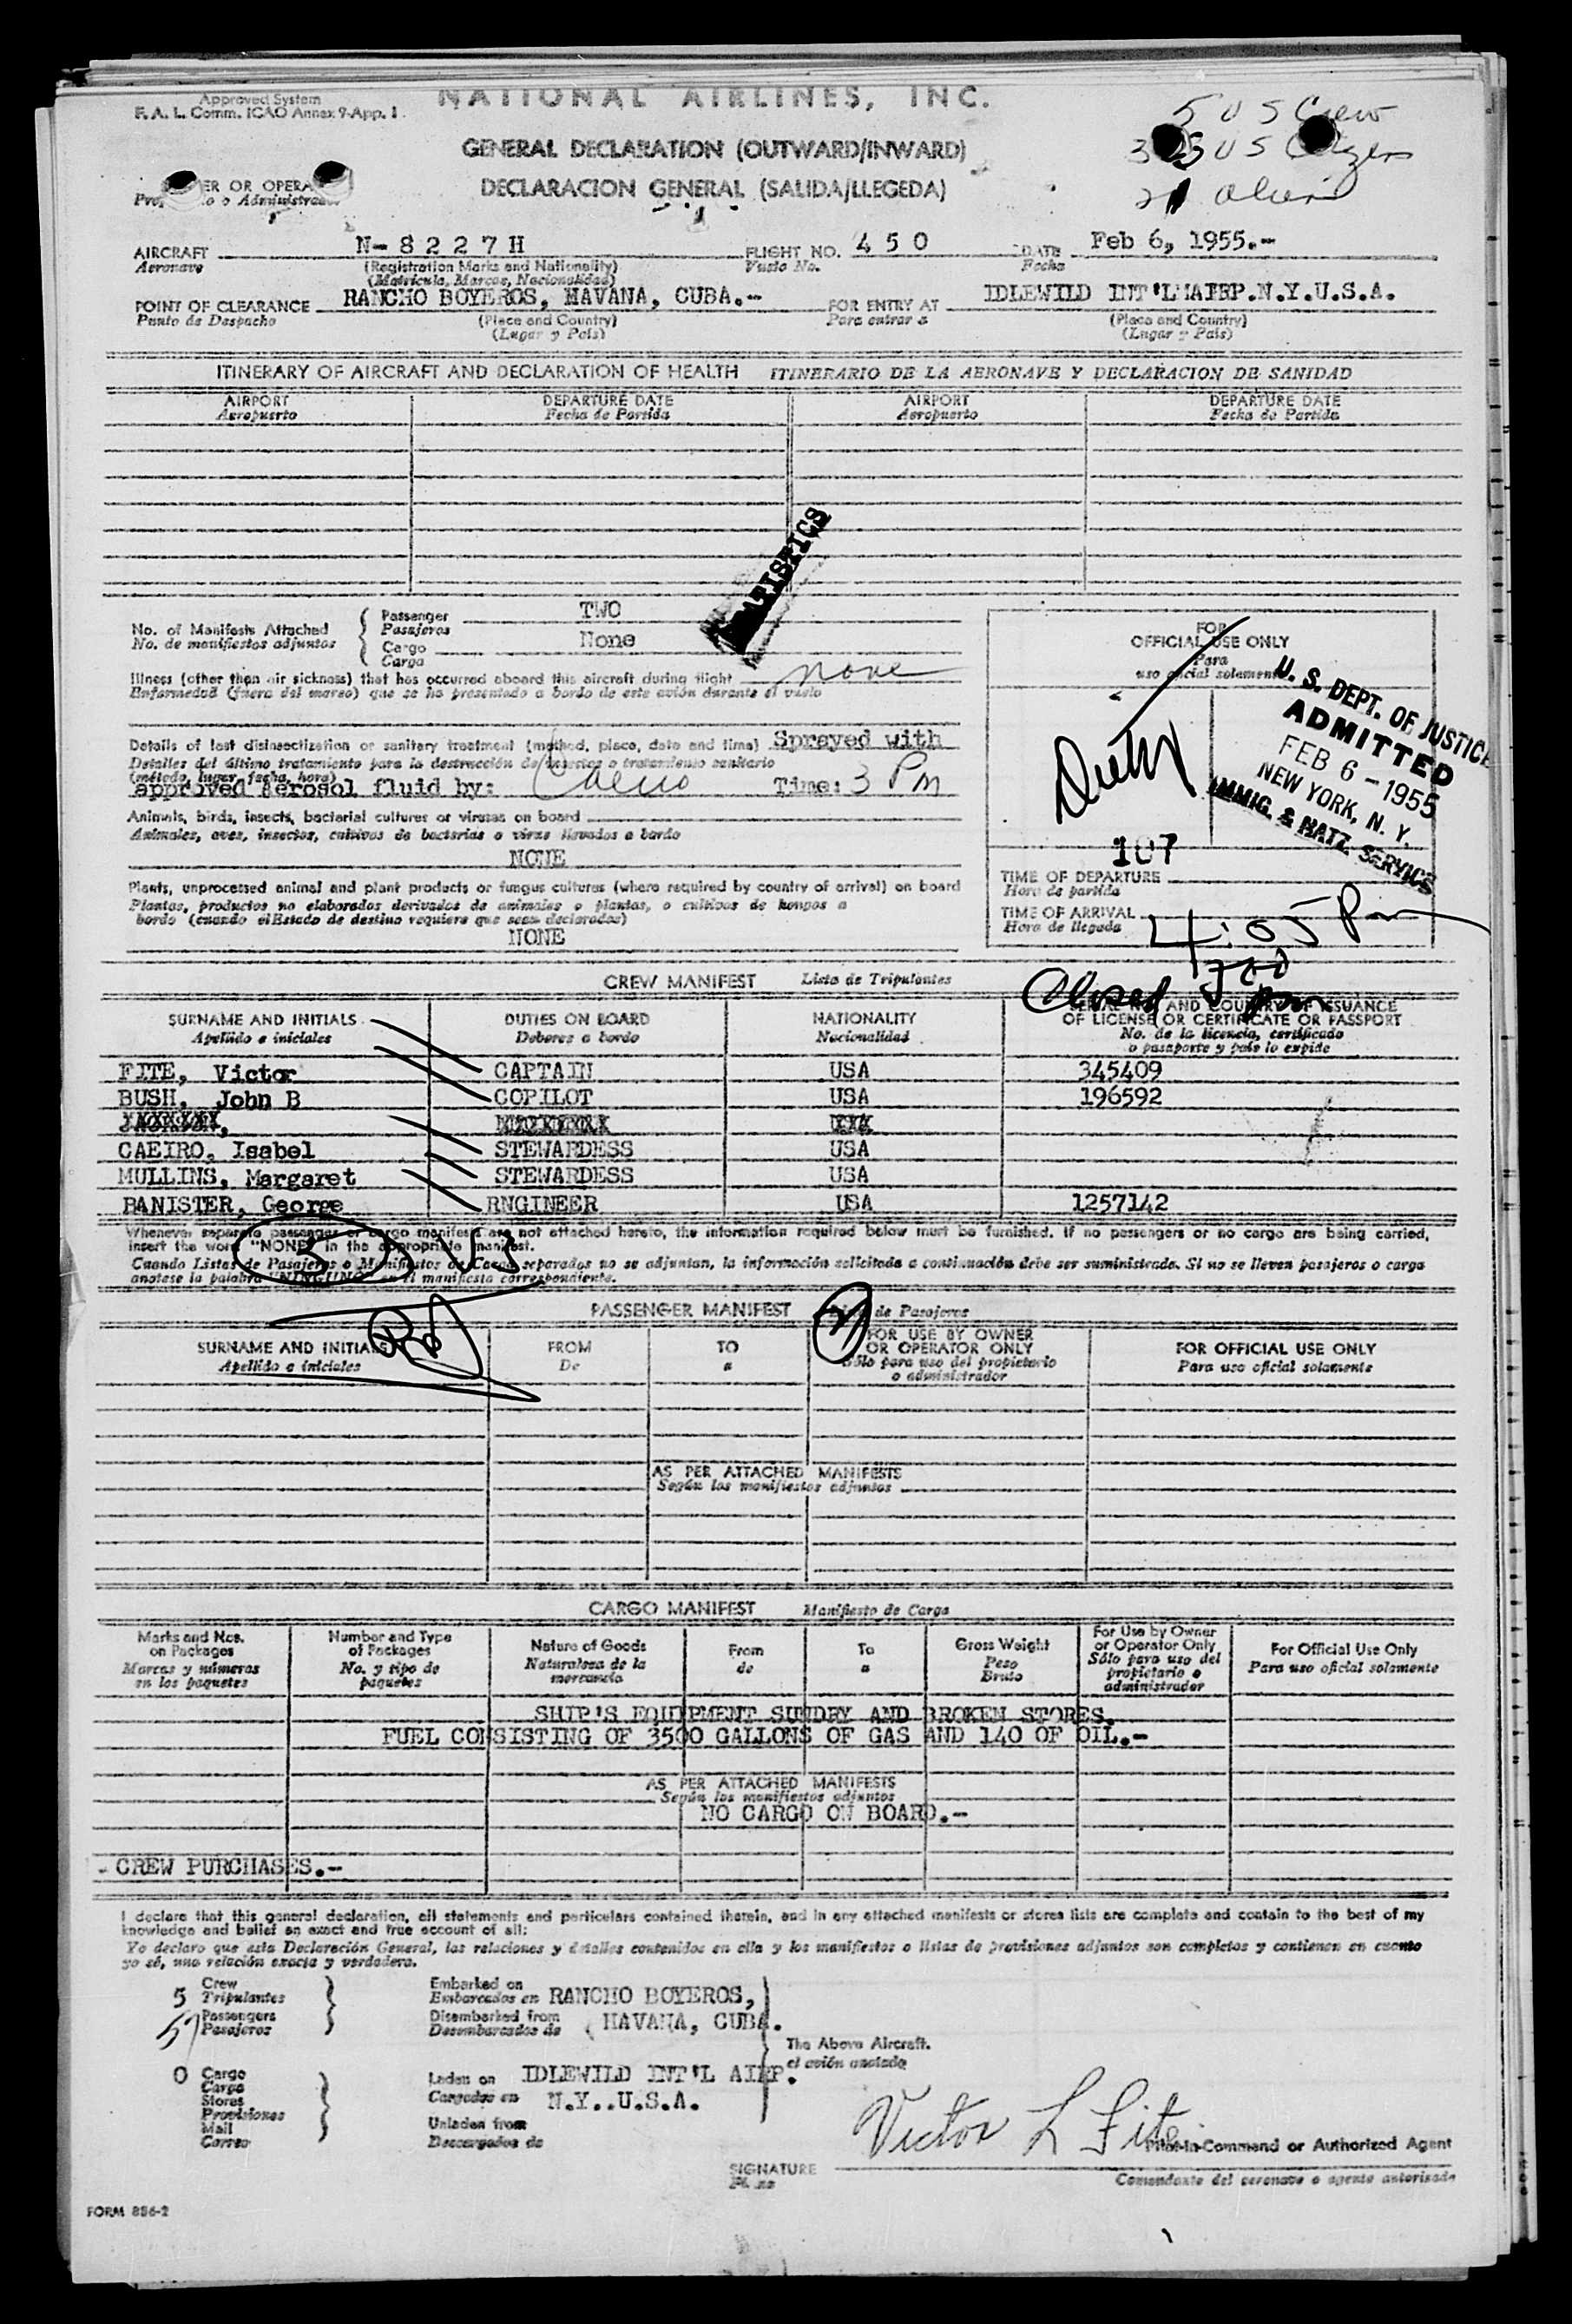 Approved System
F. A. L. Comm. ICAO Annex 9-App. 1
NATIONAL AIRLINES, INC.
GENERAL DECLARATION (OUTWARD/INWARD)
DECLARACION GENERAL (SALIDA/LLEGEDA)
5 U S Crew
U S
21 alien
OR
o Administrador
AIRCRAFT N-8227H FLIGHT NO. 450 DATE Feb 6, 1955.-
Aeronave (Registration Marks and Nationality) Vuelo No. Fecha
(Matricula, Marcas, Nacionalidad)
POINT OF CLEARANCE RANCHO BOYEROS, HAVANA, CUBA.- FOR ENTRY AT IDLEWILD INT'L AIRP.N.Y.U.S.A.
Punto de Despacho (Place and Country) Para entrar a (Place and Country)
(Lugar y Pais) (Lugar y Pais)
ITINERARY OF AIRCRAFT AND DECLARATION OF HEALTH ITINERARIO DE LA AERONAVE Y DECLARACION DE SANIDAD
AIRPORT DEPARTURE DATE AIRPORT DEPARTURE DATE
Aeropuerto Fecha de Partida Aeropuerto Fecha de Partida
No. of Manifests Attached Passenger TWO
No. de manifiestos adjuntos Pasajeros
Cargo None
Carga
Illness (other than air sickness) that has occurred aboard this aircraft during flight none
Enfermedad (fuera del mareo) que se ha presentado a bordo de este avión durante el vuelo
Details of last disinsectization or sanitary treatment (method, place, date and time) Sprayed with
Detalles del último tratamiento para la destrucción de insectos o tratamiento sanitario
(método, lugar, fecha, hora)
approved Aerosol fluid by: Caeiro Time: 3 Pm
Animals, birds, insects, bacterial cultures or viruses on board
Animales, aves, insectos, cultivos de bacterias o virus llevados a bordo
NONE
Plants, unprocessed animal and plant products or fungus cultures (where required by country of arrival) on board
Plantas, productos no elaborados derivados de animales o plantas, o cultivos de hongos a
bordo (cuando el Estado de destino requiera que sean declarados)
NONE
FOR
OFFICIAL USE ONLY
Para
uso oficial solamente
U. S. DEPT. OF JUSTICE
ADMITTED
FEB 6 - 1955
NEW YORK, N. Y.
IMMIG. & NATZ. SERVICE
107
TIME OF DEPARTURE
Hora de partida
TIME OF ARRIVAL 4:05 Pm
Hora de llegada
Closed 700 pm
CREW MANIFEST Lista de Tripulantes
SURNAME AND INITIALS DUTIES ON BOARD NATIONALITY SERIAL NO. AND COUNTRY OF ISSUANCE
Apellido e iniciales Deberes a bordo Nacionalidad OF LICENSE OR CERTIFICATE OR PASSPORT
No. de la licencia, certificado
o pasaporte y país lo expide
FITE, Victor CAPTAIN USA 345409
BUSH, John B COPILOT USA 196592
CAEIRO, Isabel STEWARDESS USA
MULLINS, Margaret STEWARDESS USA
BANISTER, George RNGINEER USA 1257142
Whenever separate passenger or cargo manifest are not attached hereto, the information required below must be furnished. If no passengers or no cargo are being carried,
insert the word "NONE" in the appropriate manifest.
Cuando Listas de Pasajeros o Manifiestos de Carga separados no se adjuntan, la información solicitada a continuación debe ser suministrada. Si no se lleven pasajeros o carga
anotese la palabra "NINGUNO" en el manifiesto correspondiente.
PASSENGER MANIFEST Lista de Pasajeros
SURNAME AND INITIALS FROM TO FOR USE BY OWNER FOR OFFICIAL USE ONLY
Apellido e iniciales De a OR OPERATOR ONLY Para uso oficial solamente
Sólo para uso del propietario
o administrador
AS PER ATTACHED MANIFESTS
Según los manifiestos adjuntos
CARGO MANIFEST Manifiesto de Carga
Marks and Nos. Number and Type Nature of Goods From To Gross Weight For Use by Owner For Official Use Only
on Packages of Packages Naturaleza de la de a Peso or Operator Only Para uso oficial solamente
Marcas y números No. y tipo de mercancía Bruto Sólo para uso del
en los paquetes paquetes propietario o
administrador
SHIP'S EQUIPMENT SUNDRY AND BROKEN STORES.
FUEL CONSISTING OF 3500 GALLONS OF GAS AND 140 OF OIL.-
AS PER ATTACHED MANIFESTS
Según los manifiestos adjuntos
NO CARGO ON BOARD.-
CREW PURCHASES.-
I declare that this general declaration, all statements and particulars contained therein, and in any attached manifests or stores lists are complete and contain to the best of my
knowledge and belief an exact and true account of all:
Yo declaro que esta Declaración General, las relaciones y detalles contenidos en ella y los manifiestos o listas de provisiones adjuntos son completos y contienen en cuanto
yo sé, una relación exacta y verdadera.
5 Crew Embarked on RANCHO BOYEROS,
Tripulantes Embarcados en
57 Passengers Disembarked from HAVANA, CUBA.
Pasajeros Desembarcados de
The Above Aircraft.
el avión anotado
0 Cargo Laden on IDLEWILD INT'L AIRP.
Carga Cargados en N.Y..U.S.A.
Stores
Provisiones
Mail Unladen from
Correo Descargados de
Victor L Fite
Pilot-in-Command or Authorized Agent
SIGNATURE
Comandante del aeronave o agente autorizado
FORM 886-2